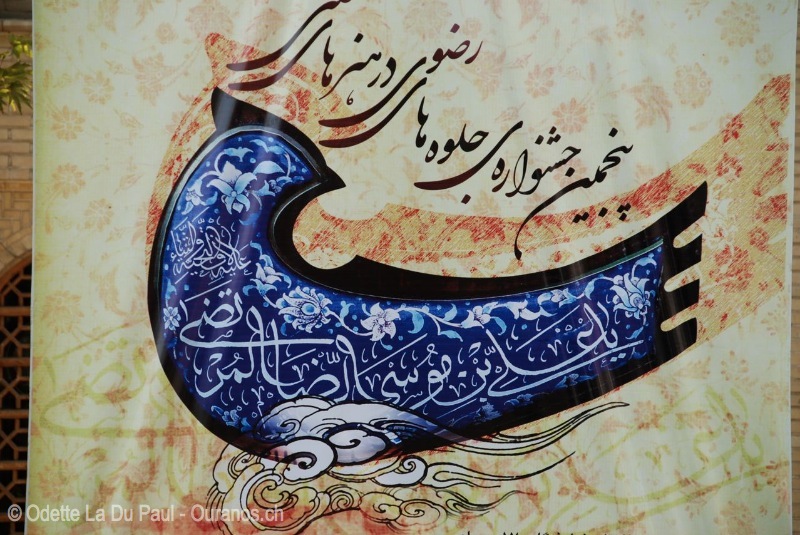 پنجمین جشنواره‌ی جلوه های
رضوی در هنرهای
علیه آلاف التحیة والثناء
یا علی بن موسی الرضا المرتضی
© Odette La Du Paul - Ouranos.ch